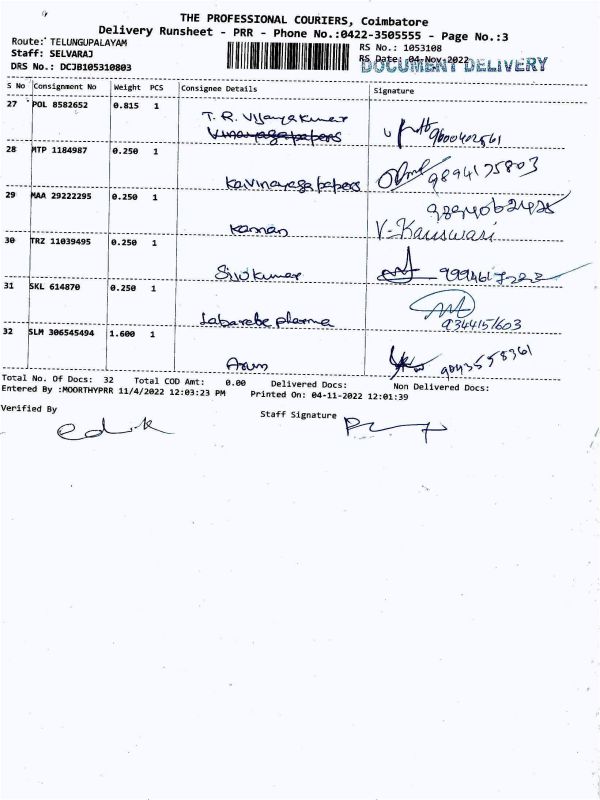 THE PROFESSIONAL COURIERS, Coimbatore
Delivery Runsheet - PRR - Phone No.:0422-3505555 - Page No.:3
Route: TELUNGUPALAYAM
Staff: SELVARAJ
DRS No.: DCJB105310803
RS No.: 1053108
RS Date: 04-Nov-2022
DOCUMENT DELIVERY
S No Consignment No Weight PCS Consignee Details Signature
27 POL 8582652 0.815 1
T. R. Vijayakumar
Vinayaga papers
9600402561
28 MTP 1184987 0.250 1
Kavinayaga papers 9894175803
29 MAA 29222295 0.250 1
Kannan
30 TRZ 11039495 0.250 1
Sivakumar
31 SKL 614870 0.250 1
9344151603
32 SLM 306545494 1.600 1
Arun 9043558361
Total No. Of Docs: 32 Total COD Amt: 0.00 Delivered Docs: Non Delivered Docs:
Entered By :MOORTHYPRR 11/4/2022 12:03:23 PM Printed On: 04-11-2022 12:01:39
Verified By Staff Signature